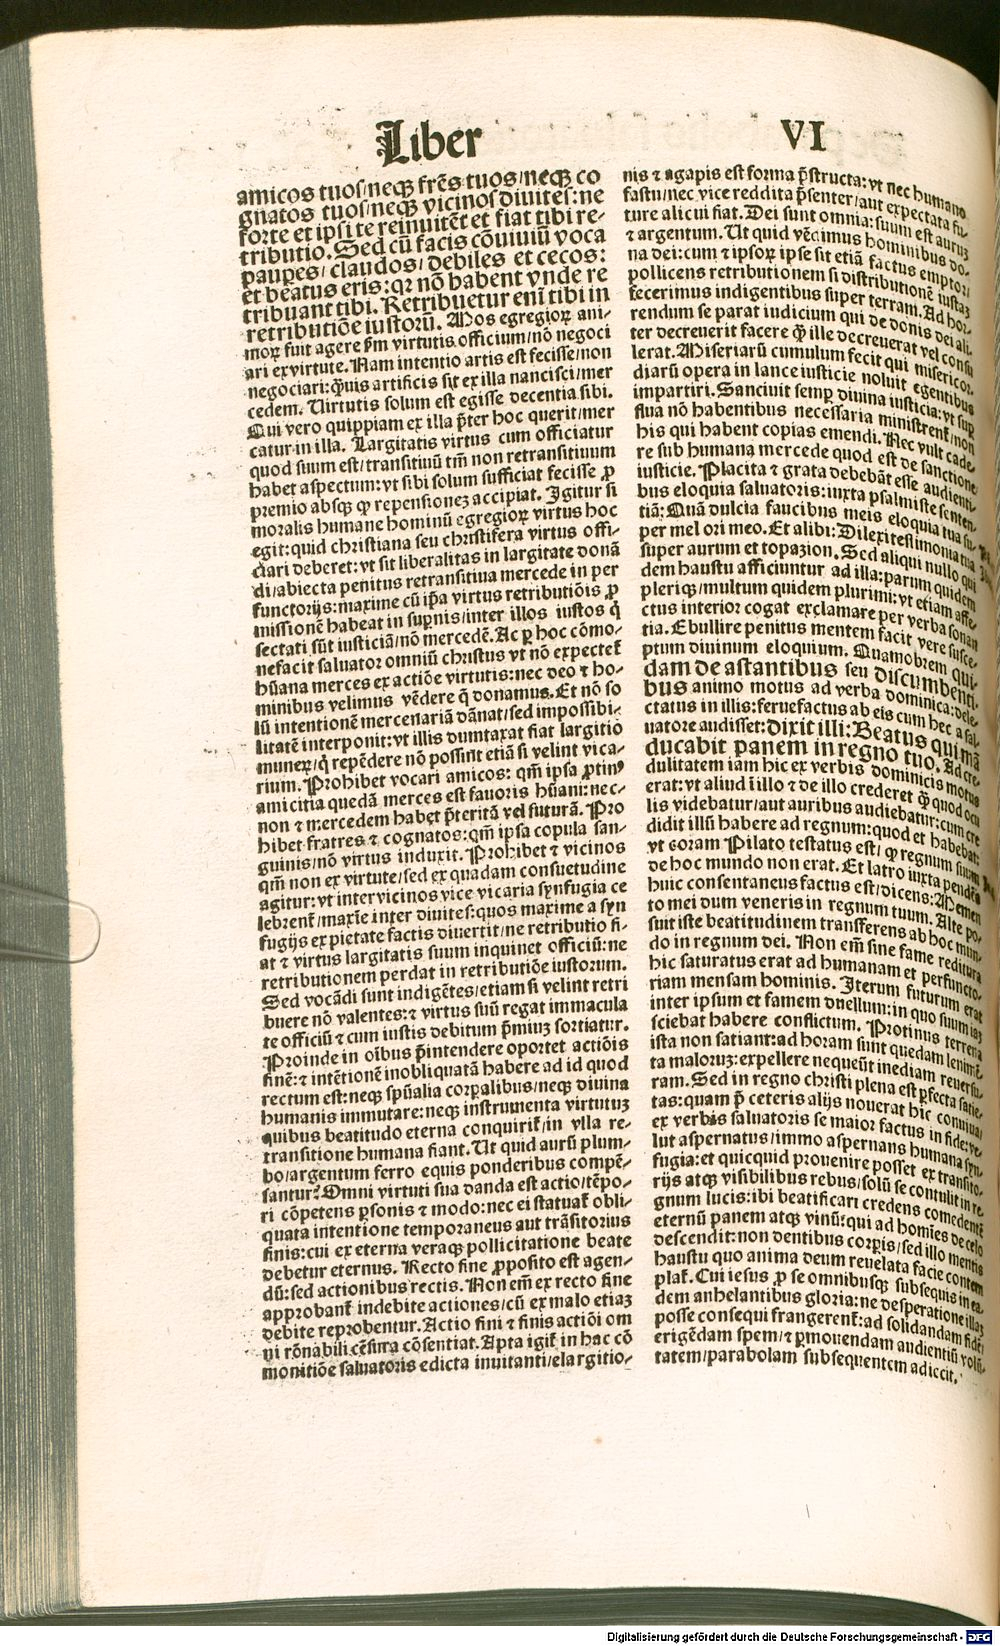 Liber VI
amicos tuos/neqȝ frēs tuos/neqȝ co
gnatos tuos/neqȝ vicinos diuites: ne
forte et ipsi te reinuitēt et fiat tibi re-
tributio. Sed cū facis cōuiuiū voca
pauꝑes/claudos/debiles et cecos:
et beatus eris: qꝛ nō habent vnde re
tribuant tibi. Retribuetur enī tibi in
retributiōe iustorū. Mos egregioꝝ ani-
moꝝ fuit agere ꝓm virtutis officium/nō negoci
ari ex virtute. Nam intentio artis est fecisse/non
negociari: q̄uis artificis sit ex illa nancisci/mer
cedem. Uirtutis solum est egisse decentia sibi.
Qui vero quippiam ex illa p̄ter hoc querit/mer
catur in illa. Largitatis virtus cum officiatur
quod suum est/transitiuū tm̄ non retransitiuum
habet aspectum: vt sibi solum sufficiat fecisse ꝓ
premio absqȝ ꝙ repensionez accipiat. Igitur si
moralis humane hominū egregioꝝ virtus hoc
egit: quid christiana seu christifera virtus offi-
ciari deberet: vt sit liberalitas in largitate donā
di/abiecta penitus retransitiua mercede in per
functorijs: maxime cū ip̄a virtus retributiōis ꝓ
missionē habeat in suꝑnis/inter illos iustos q̄
sectati sūt iusticiā/nō mercedē. Ac ꝑ hoc cōmo-
nefacit saluator omniū christus vt nō expectet
hūana merces ex actiōe virtutis: nec deo & ho-
minibus velimus vēdere q̄ donamus. Et nō so
lū intentionē mercenariā dānat/sed impossibi-
litatē interponit: vt illis dumtaxat fiat largitio
muneꝝ/q̄ repēdere nō possint etiā si velint vica-
rium. Prohibet vocari amicos: qm̄ ipsa ꝓtin⁹
amicitia quedā merces est fauoris hūani: nec-
non & mercedem habet p̄teritā vel futurā. Pro
hibet fratres & cognatos: qm̄ ipsa copula san-
guinis/nō virtus induxit. Prohibet & vicinos
qm̄ non ex virtute/sed ex quadam consuetudine
agitur: vt inter vicinos vice vicaria synfugia ce
lebrent/maxīe inter diuites: quos maxime a syn
fugijs ex pietate factis diuertit/ne retributio fi-
at & virtus largitatis suum inquinet officiū: ne
retributionem perdat in retributiōe iustorum.
Sed vocādi sunt indigētes/etiam si velint retri
buere nō valentes: & virtus suū regat immacula
te officiū & cum iustis debitum p̄miuȝ sortiatur.
Proinde in oībus p̄intendere oportet actiōis
finē: & intētionē inobliquatā habere ad id quod
rectum est: neqȝ spūalia corꝑalibus/neqȝ diuina
humanis immutare: neqȝ instrumenta virtutuȝ
quibus beatitudo eterna conquirit/in vlla re-
transitione humana fiant. Ut quid aurū plum-
bo/argentum ferro equis ponderibus compē-
santur? Omni virtuti sua danda est actio/tēpo-
ri cōpetens ꝑsonis & modo: nec ei statuat obli-
quata intentione temporaneus aut trāsitorius
finis: cui ex eterna veraqȝ pollicitatione beate
debetur eternus. Recto fine ꝓposito est agen-
dū: sed actionibus rectis. Non em̄ ex recto fine
approbant indebite actiones/cū ex malo etiaȝ
debite reprobentur. Actio fini & finis actiōi om
ni rōnabili cēsura cōsentiat. Apta igit in hac cō
monitiōe saluatoris edicta inuitanti/elargitio-
nis & agapis est forma p̄structa: vt nec humano
fastu/nec vice reddita p̄senter/aut expectata fu-
ture alicui fiat. Dei sunt omnia: suum est auruȝ
& argentum. Ut quid vēdimus hominibus do-
na dei: cum & ipsoꝝ ipse sit etiā factus emptor/
pollicens retributionem si distributionē iustaȝ
fecerimus indigentibus super terram. Ad hor-
rendum se parat iudicium qui de donis dei ali-
ter decreuerit facere q̄ ille decreuerat vel consu
lerat. Miseriarū cumulum fecit qui misericor-
diarū opera in lance iusticie noluit egentibus
impartiri. Sanciuit semꝑ diuina iusticia: vt suꝑ
flua nō habentibus necessaria ministrent/non
his qui habent copias emendi. Nec vult cade-
re sub humana mercede quod est de sanctione
iusticie. Placita & grata debebāt esse audienti-
bus eloquia saluatoris: iuxta psalmiste senten-
tiā: Quā dulcia faucibus meis eloquia tua su-
per mel ori meo. Et alibi: Dilexi testimonia tua
super aurum et topazion. Sed aliqui nullo qui
dem haustu afficiuntur ad illa: parum quidem
pleriqȝ/multum quidem plurimi: vt etiam affe-
ctus interior cogat exclamare per verba sonan
tia. Ebullire penitus mentem facit vere susce-
ptum diuinum eloquium. Quamobrem qui-
dam de astantibus seu discumbenti-
bus animo motus ad verba dominica: dele-
ctatus in illis: feruefactus ab eis cum hec a sal-
uatore audisset: dixit illi: Beatus qui mā
ducabit panem in regno tuo. Ad cre-
dulitatem iam hic ex verbis dominicis motus
erat: vt aliud ī illo & de illo crederet q̄ quod ocu
lis videbatur/aut auribus audiebatur: cum cre
didit illū habere ad regnum: quod et habebat:
vt coram Pilato testatus est/ꝙ regnum suum
de hoc mundo non erat. Et latro iuxta pendēs
huic consentaneus factus est/dicens: Memen
to mei dum veneris in regnum tuum. Alte po-
suit iste beatitudinem transferens ab hoc mun-
do in regnum dei. Non em̄ sine fame reditura
hic saturatus erat ad humanam et perfuncto-
riam mensam hominis. Iterum futurum erat
inter ipsum et famem duellum: in quo suum iaȝ
sciebat habere conflictum. Protinus terrena
ista non satiant: ad horam sunt quedam lenimē
ta maloruȝ: expellere nequeūt inediam reuersu-
ram. Sed in regno christi plena est ꝑfecta satie-
tas: quam p̄ ceteris alijs nouerat hic conuiua/
ex verbis saluatoris se maior factus in fide: ve-
lut aspernatus/immo aspernans humana syn-
fugia: et quicquid prouenire posset ex transito-
rijs atqȝ visibilibus rebus/solū se contulit in re-
gnum lucis: ibi beatificari credens comedentē
eternū panem atqȝ vinū: qui ad homīes de celo
descendit: non dentibus corꝑis/sed illo mentis
haustu quo anima deum reuelata facie contem
plat. Cui iesus ꝓ se omnibusqȝ subsequis in ea-
dem anhelantibus gloria: ne desperatione illaȝ
posse consequi frangerent: ad solidandam fidē/
erigēdam spem/& ꝑmouendam audientiū volū-
tatem/parabolam subsequentem adiecit.
Digitalisierung gefördert durch die Deutsche Forschungsgemeinschaft - DFG